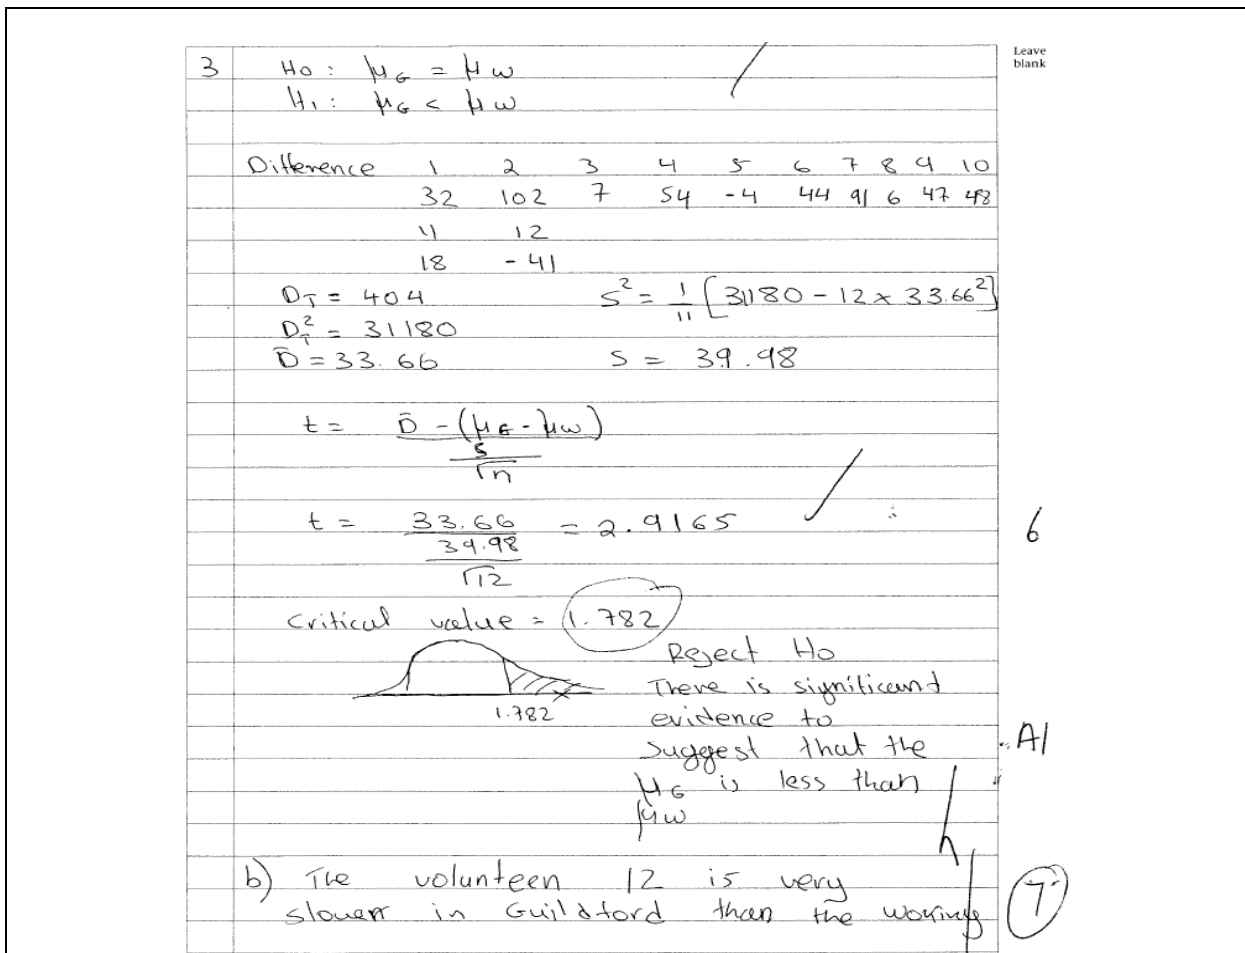 Leave
blank
3 H0 : μG = μW
H1 : μG < μW
Difference 1 2 3 4 5 6 7 8 9 10
32 102 7 54 -4 44 91 6 47 48
11 12
18 -41
DT = 404 S² = 1/11 [31180 - 12 × 33.66²]
DT² = 31180
D̄ = 33.66 S = 39.98
t = D̄ - (μG - μW) / (S/√n)
t = 33.66 / (39.98/√12) = 2.9165
6
critical value = 1.782
Reject H0
There is significant
1.782 evidence to
suggest that the A1
μG is less than
μW
b) The volunteen 12 is very
slower in Guildford than the woking
7